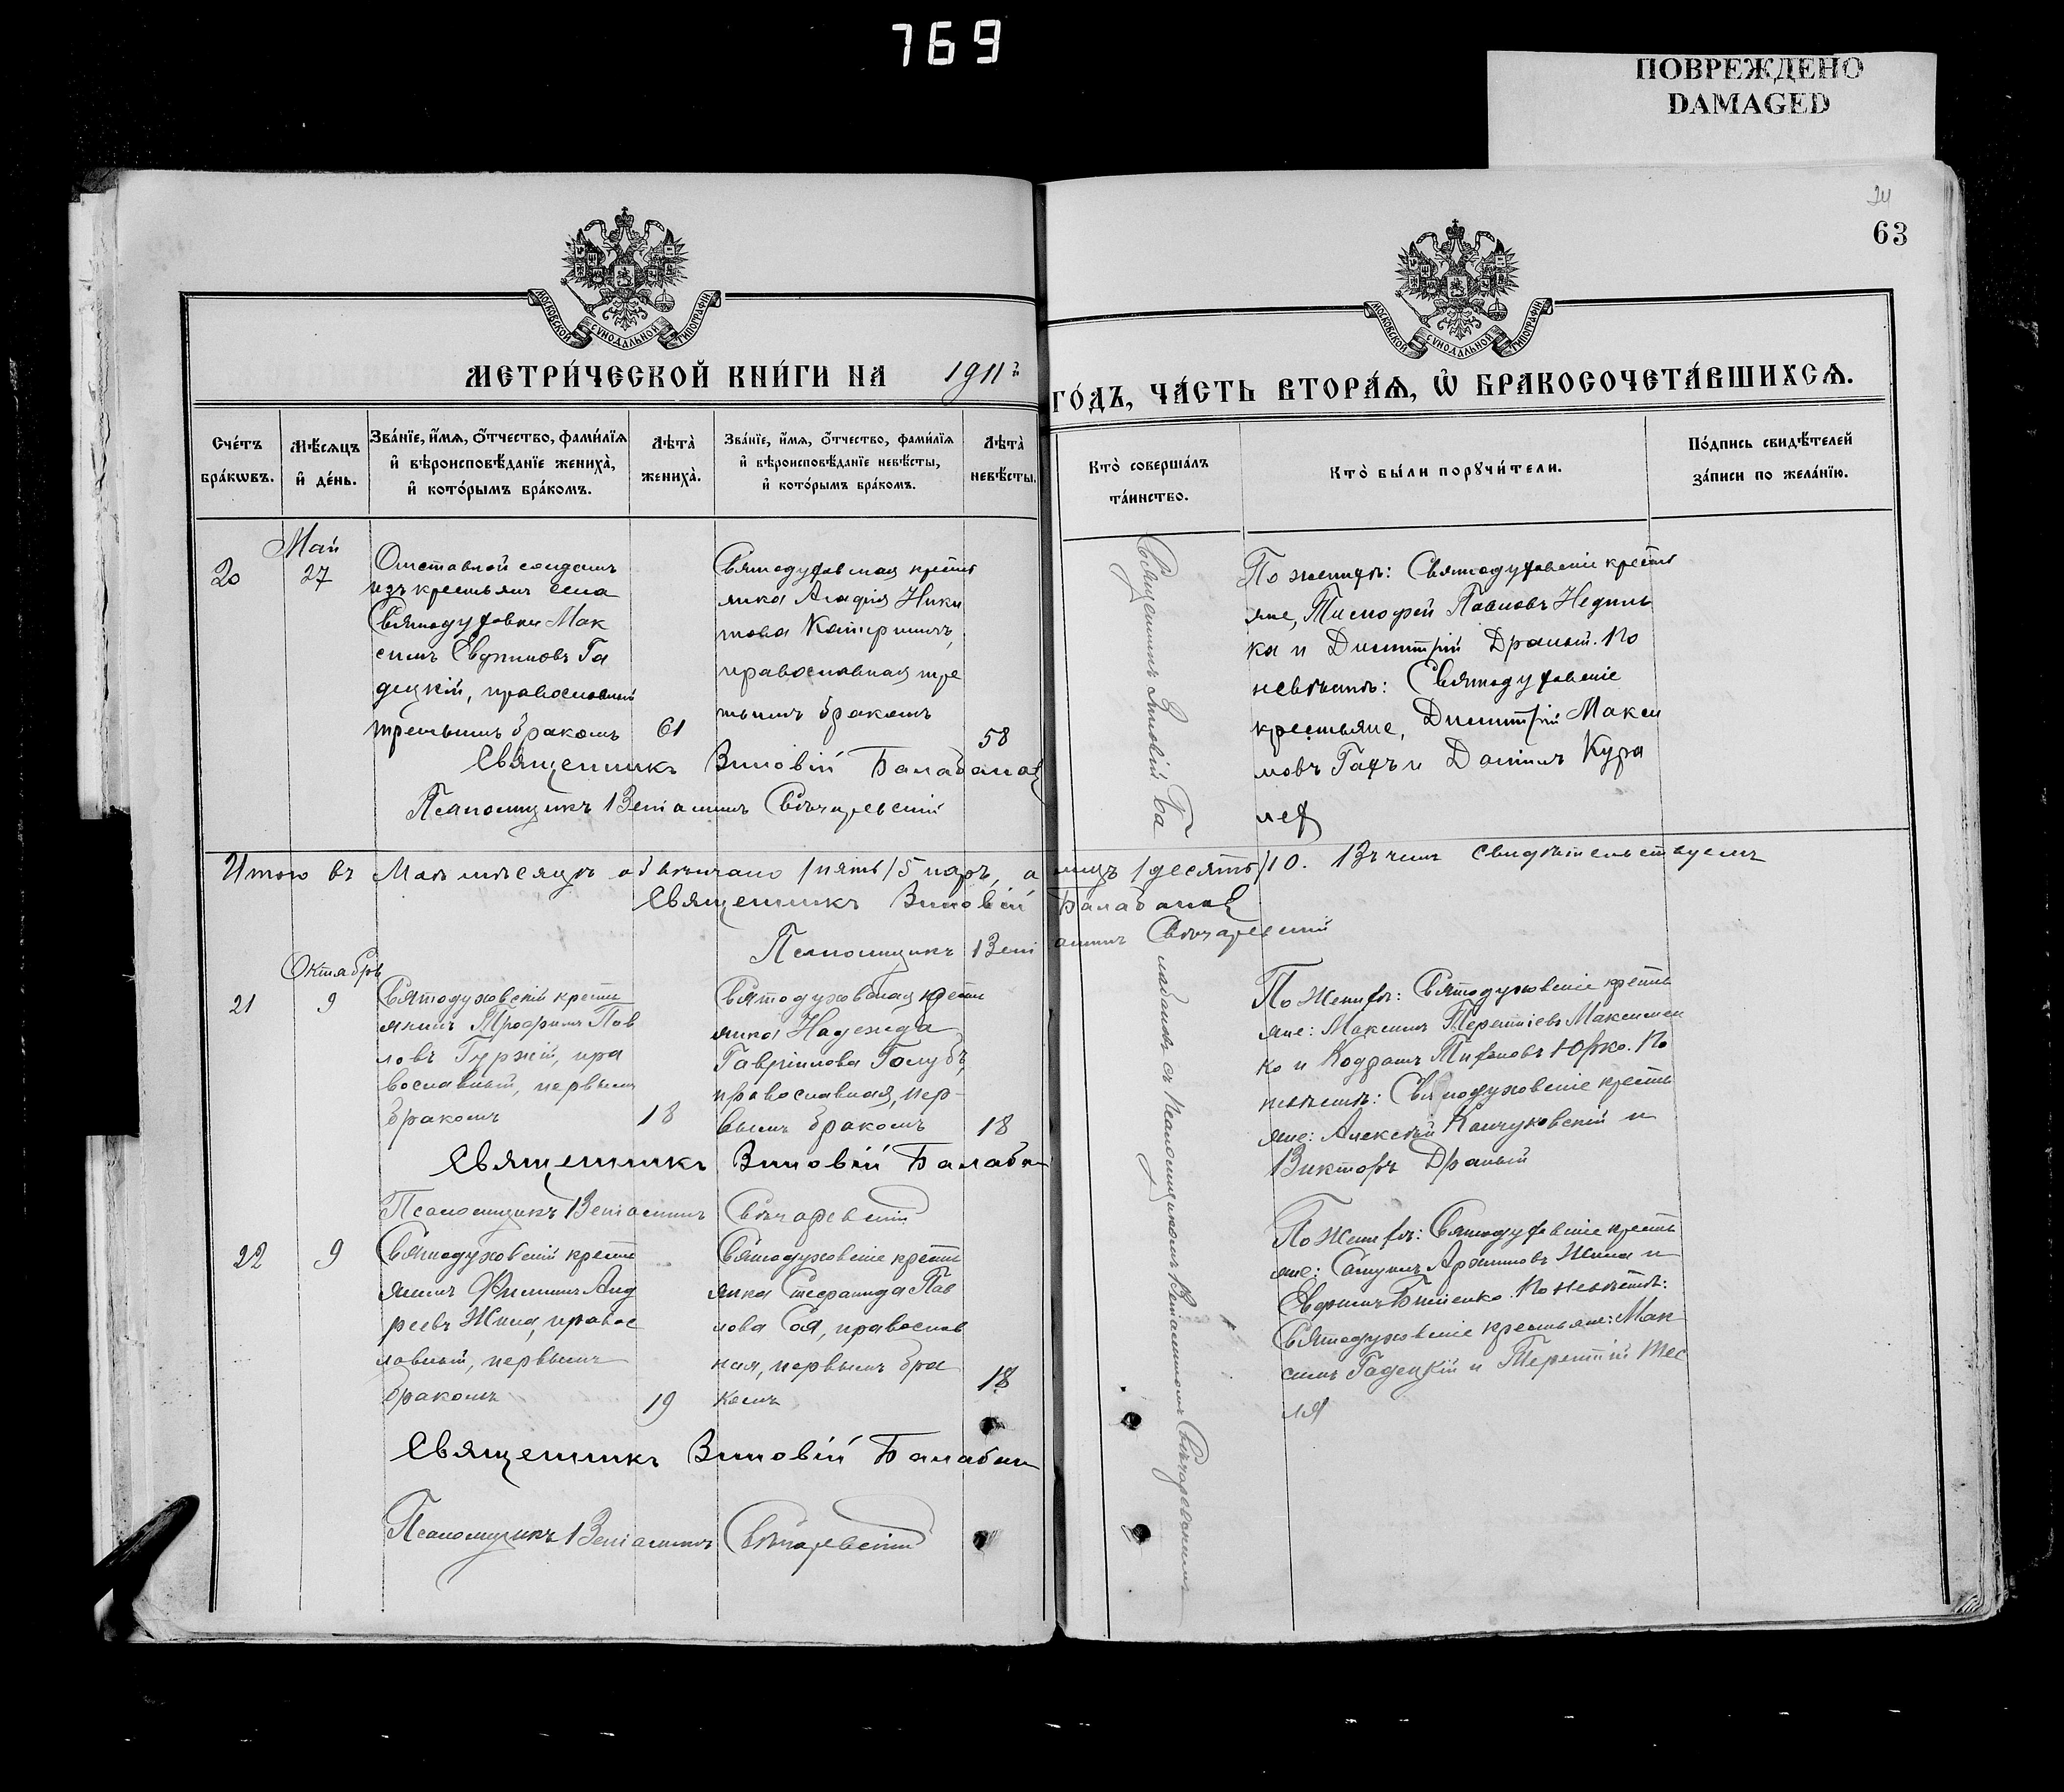 769
ПОВРЕЖДЕНО
DAMAGED
63
МОСКОВСКОЙ СѴНОДАЛЬНОЙ ТИПОГРАФІИ
МОСКОВСКОЙ СѴНОДАЛЬНОЙ ТИПОГРАФІИ
МЕТРИ́ЧЕСКОЙ КНИ́ГИ НА 1911 г
ГО́ДЪ, ЧА́СТЬ ВТОРА́Ѧ, Ѽ БРАКОСОЧЕТА́ВШИХСѦ.
Сче́тъ бра́кωвъ.
Мѣ́сѧцъ и҆ де́нь.
Зва́нїе, и҆́мѧ, ѻ҆́тчество, фами́лїѧ
и҆ вѣроисповѣ́данїе жениха̀,
и҆ кото́рымъ бра́комъ.
Лѣта̀ жениха̀.
Зва́нїе, и҆́мѧ, ѻ҆́тчество, фами́лїѧ
и҆ вѣроисповѣ́данїе невѣ́сты,
и҆ кото́рымъ бра́комъ.
Лѣта̀ невѣ́сты.
Кто̀ соверша́лъ та́инство.
Кто̀ бы́ли порꙋчи́тели.
По́дпись свидѣ́телей за́писи по жела́нїю.
Май
20
27
Отставной солдатъ
изъ крестьянъ села
Святодуховки Мак
симъ Евфимовъ Га
децкій, православный
третьимъ бракомъ
61
Святодуховская кресть
янка Агафія Ники
това
православная тре
тьимъ бракомъ
58
По женихѣ: Святодуховскіе кресть
яне, Тимофей Павловъ Недиль
ка и Димитрій Драный. По
невѣстѣ: Святодуховскіе
крестьяне, Димитрій Макси
мовъ Гахъ и Даніилъ Кура
лех
Священникъ Зиновій Балабанов
Псаломщикъ Веніаминъ Свѣчаревскій
Итого въ Маѣ мѣсяцѣ обвѣнчано /пять/ 5 паръ, а лицъ /десять/ 10. Въ чемъ свидѣтельствуемъ
Священникъ Зиновій Балабанов
Псаломщикъ Веніаминъ Свѣчаревскій
Октябрь
21
9
Святодуховскій кресть
янинъ Трофимъ Пав
ловъ Гуржій, пра
вославный, первымъ
бракомъ
18
Святодуховская кресть
янка Надежда
Гавріилова Голубъ,
православная, пер-
вымъ бракомъ
18
По женихѣ: Святодуховскіе кресть
яне: Максимъ Терентіевъ Максимен
ко и Кодратъ Тихоновъ Юрко. По
невѣстѣ: Святодуховскіе кресть
яне: Алексѣй Калчуковскій и
Викторъ Драный
Священникъ Зиновій Балабан
Псаломщикъ Веніаминъ Свѣчаревскій
22
9
Святодуховскій кресть
янинъ Филиппъ Анд
реевъ Жила, правос
лавный, первымъ
бракомъ
19
Святодуховскіе кресть
янка Стефанида Пав
лова Соя, православ
ная, первымъ бра
комъ
18
По женихѣ: Святодуховскіе кресть
яне: Самуилъ Архиповъ Жила и
Евфимъ Билченко. По невѣстѣ:
Святодуховскіе крестьяне: Мак
симъ Гадецкій и Терентій Тес
ля
Священникъ Зиновій Балабан
Псаломщикъ Веніаминъ Свѣчаревскій
Священникъ Зиновій Ба
лабановъ съ псаломщикомъ Веніаминомъ Свѣчаревскимъ